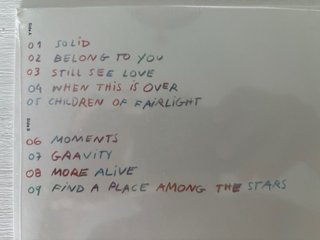 SIDE A
01 SOLiD
02 BELONG TO YOU
03 STILL SEE LOVE
04 WHEN THIS IS OVER
05 CHILDREN OF FAIRLIGHT
SIDE B
06 MOMENTS
07 GRAVITY
08 MORE ALiVE
09 FiND A PLACE AMONG THE STARS